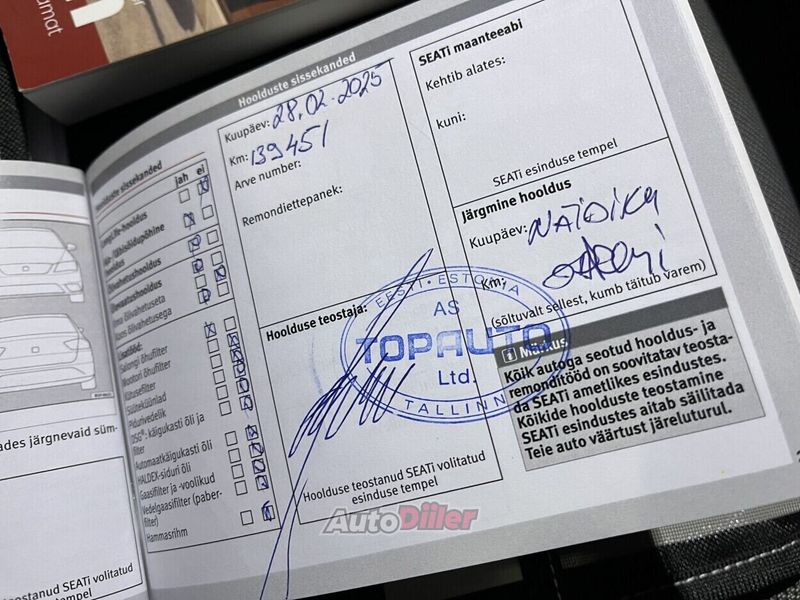 amat
Hoolduste sissekanded
Kuupäev: 28.02.2025
Km: 139451
Arve number:
Remondiettepanek:
Hoolduse teostaja:
Hoolduse teostanud SEATi volitatud
esinduse tempel
SEATi maanteeabi
Kehtib alates:
kuni:
SEATi esinduse tempel
Järgmine hooldus
Kuupäev: NÄIDIKU
Km:
(sõltuvalt sellest, kumb täitub varem)
EESTI • ESTONIA
AS
TOPAUTO
Ltd.
TALLINN
Märkus
Kõik autoga seotud hooldus- ja
remonditööd on soovitatav teosta-
da SEATi ametlikes esindustes.
Kõikide hoolduste teostamine
SEATi esindustes aitab säilitada
Teie auto väärtust järeluturul.
sissekanded
jah ei
LongLife-hooldus
hooldus
Õlivahetushooldus
Ülevaatushooldus
Ilma õlivahetuseta
Koos õlivahetusega
Lisatööd:
Salongi õhufilter
Mootori õhufilter
Kütusefilter
Süüteküünlad
Pidurivedelik
DSG®- käigukasti õli ja
filter
Automaatkäigukasti õli
HALDEX-siduri õli
Gaasifilter ja -voolikud
Vedelgaasifilter (paber-
filter)
Hammasrihm
ades järgnevaid süm-
eostanud SEATi volitatud
esinduse tempel
AutoDiiler